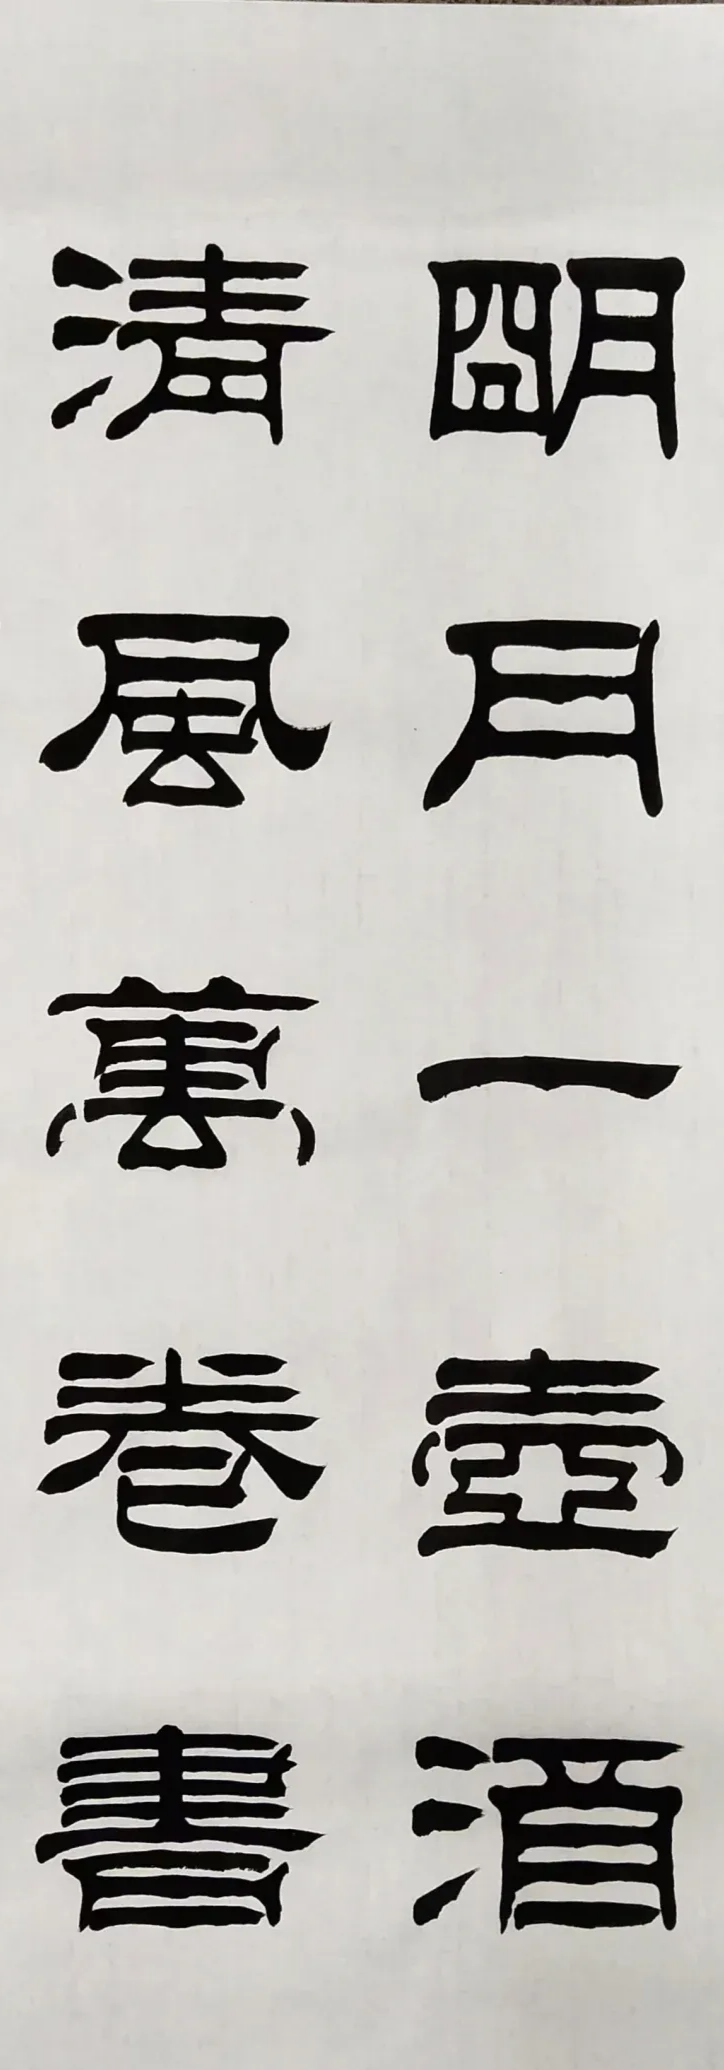 朙月一壺酒
清風萬卷書